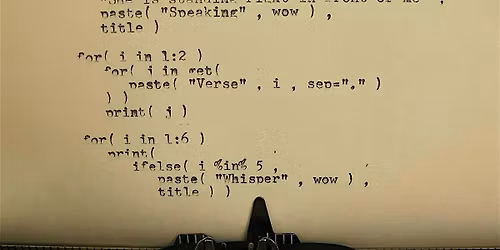 "She is standing right in front of me" ,
paste( "Speaking" , wow ) ,
title )
for( i in 1:2 )
for( j in get(
paste( "Verse" , i , sep="." )
) )
print( j )
for( i in 1:6 )
print(
ifelse( i %in% 5 ,
paste( "Whisper" , wow ) ,
title ) )